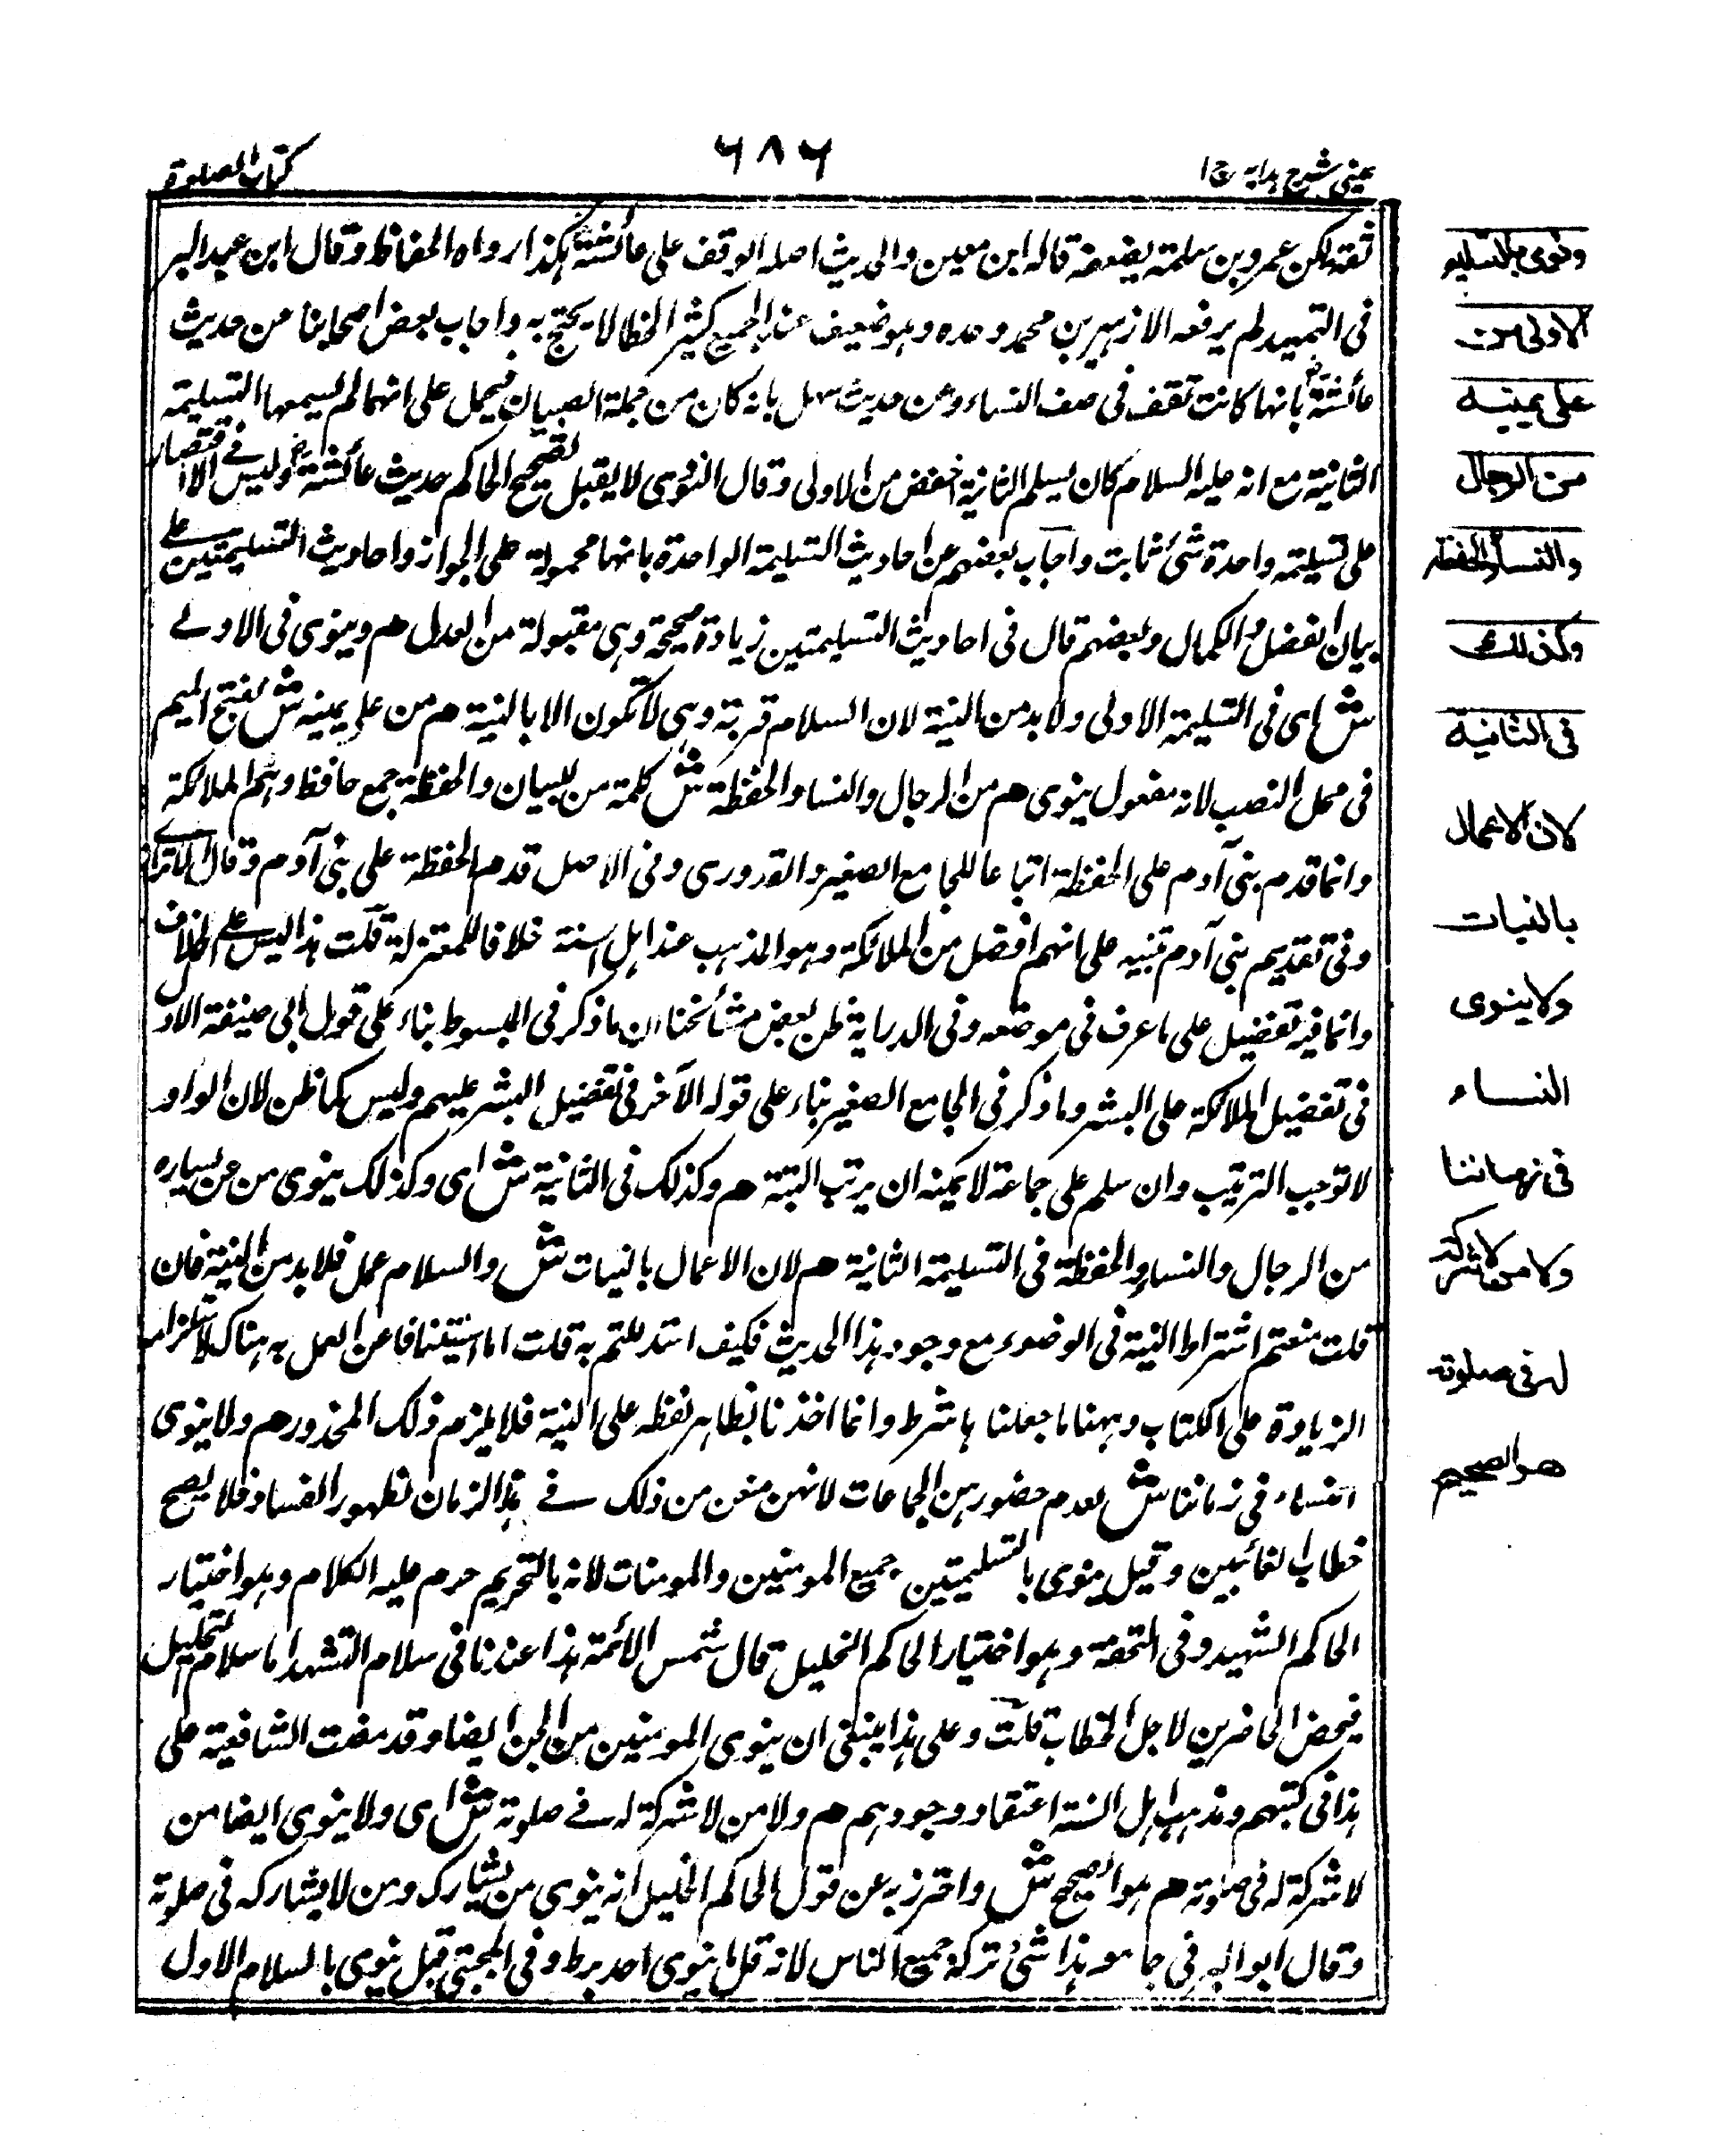 عینی شرح ہدایہ ج ۱
۶۸۶
کتاب الصلوۃ
ثقة لكن عمرو بن سلمة يضعفه قاله ابن معين والحديث اصله الوقف على عائشة رض هكذا رواه الحفاظ وقال ابن عبد البر
فى التمهيد لم يرفعه الا زهير بن محمد وحده وهو ضعيف عند الجميع كثير الخطا لا يحتج به واجاب بعض اصحابنا عن حديث
عائشة رض بانها كانت تقف فى صف النساء وعن حديث سهل بانه كان من جملة الصبيان فيحمل على انهما لم يسمعها التسليمة
الثانية مع انه عليه السلام كان يسلم الثانية اخفض من الاولى وقال النووى لا يقبل تصحيح الحاكم حديث عائشة رض وليس فى الاقتصار
على تسليمة واحدة شئ ثابت واجاب بعضهم عن احاديث التسليمة الواحدة بانها محمولة على الجواز واحاديث التسليمتين على
بيان الفضل والكمال وبعضهم قال فى احاديث التسليمتين زيادة صحيحة وهى مقبولة من العدل هم وينوى فى الاولى
ش اى فى التسليمة الاولى ولابد من النية لان السلام قربة وهى لا تكون الا بالنية هم من على يمينه ش بفتح الميم
فى محل النصب لانه مفعول ينوى هم من الرجال والنساء والحفظة ش كلمة من للبيان والحفظة جمع حافظ وهم الملائكة
وانما قدم بنى آدم على الحفظة اتباعا للجامع الصغير والقدورى وفى الاصل قدم الحفظة على بنى آدم وقال
وفى تقديم بنى آدم تنبيه على انهم افضل من الملائكة وهو المذهب عند اهل السنة خلافا للمعتزلة قلت هذا ليس على الخلاف
وانما فيه تفضيل على ما عرف فى موضعه وفى الدراية ظن بعض مشائخنا ان ما ذكر فى المبسوط بناء على قول ابى حنيفة الاول
فى تفضيل الملائكة على البشر وما ذكر فى الجامع الصغير بناء على قوله الآخر فى تفضيل البشر عليهم وليس كما ظن لان الواو
لا توجب الترتيب وان سلم على جماعة لا يمكنه ان يرتب البتة هم وكذلك فى الثانية ش اى وكذلك ينوى من عن يساره
من الرجال والنساء والحفظة فى التسليمة الثانية هم لان الاعمال بالنيات ش والسلام عمل فلابد من النية فان
قلت منعتم اشتراط النية فى الوضوء مع وجود هذا الحديث فكيف استدللتم به قلت اما استينافا عن العمل به هناك لاستلزامه
الزيادة على الكتاب وههنا ما جعلنا ها شرط وانما اخذنا بظاهر لفظه على النية فلا يلزم ذلك المحذور هم ولا ينوى
النساء فى زماننا ش لعدم حضورهن الجماعات لانهن منعن من ذلك فى هذا الزمان لظهور الفساد فلا يصح
خطاب الغائبين وقيل ينوى بالتسليمتين جميع المومنين والمومنات لانه بالتحريم حرم عليه الكلام وهو اختيار
الحاكم الشهيد وفى التحفة وهو اختيار الحاكم الخليل قال شمس الائمة هذا عندنا فى سلام التشهد اما سلام التحليل
فيخص الحاضرين لاجل الخطاب قلت وعلى هذا ينبغى ان ينوى المومنين من الجن ايضا وقد مضت الشافعية على
هذا فى كتبهم ومذهب اهل السنة اعتقاد وجودهم هم ولا من لا شركة له فى صلوته ش اى ولا ينوى ايضا من
لا شركة له فى صلوته هم هو الصحيح ش واحترز به عن قول الحاكم الخليل انه ينوى من يشاركه ومن لا يشاركه فى صلوته
وقال ابو اليسر فى جامعه هذا شئ تركه جميع الناس لانه قل ما ينوى احد وفى المجتبى قيل ينوى بالسلام الاول
وینوی بالتسلیمة
الاولى من
على يمينه
من الرجال
والنساء والحفظة
وكذلك
فى الثانية
لان الاعمال
بالنيات
ولا ينوى
النساء
فى زماننا
ولا من لا شركة
له فى صلوته
هو الصحيح